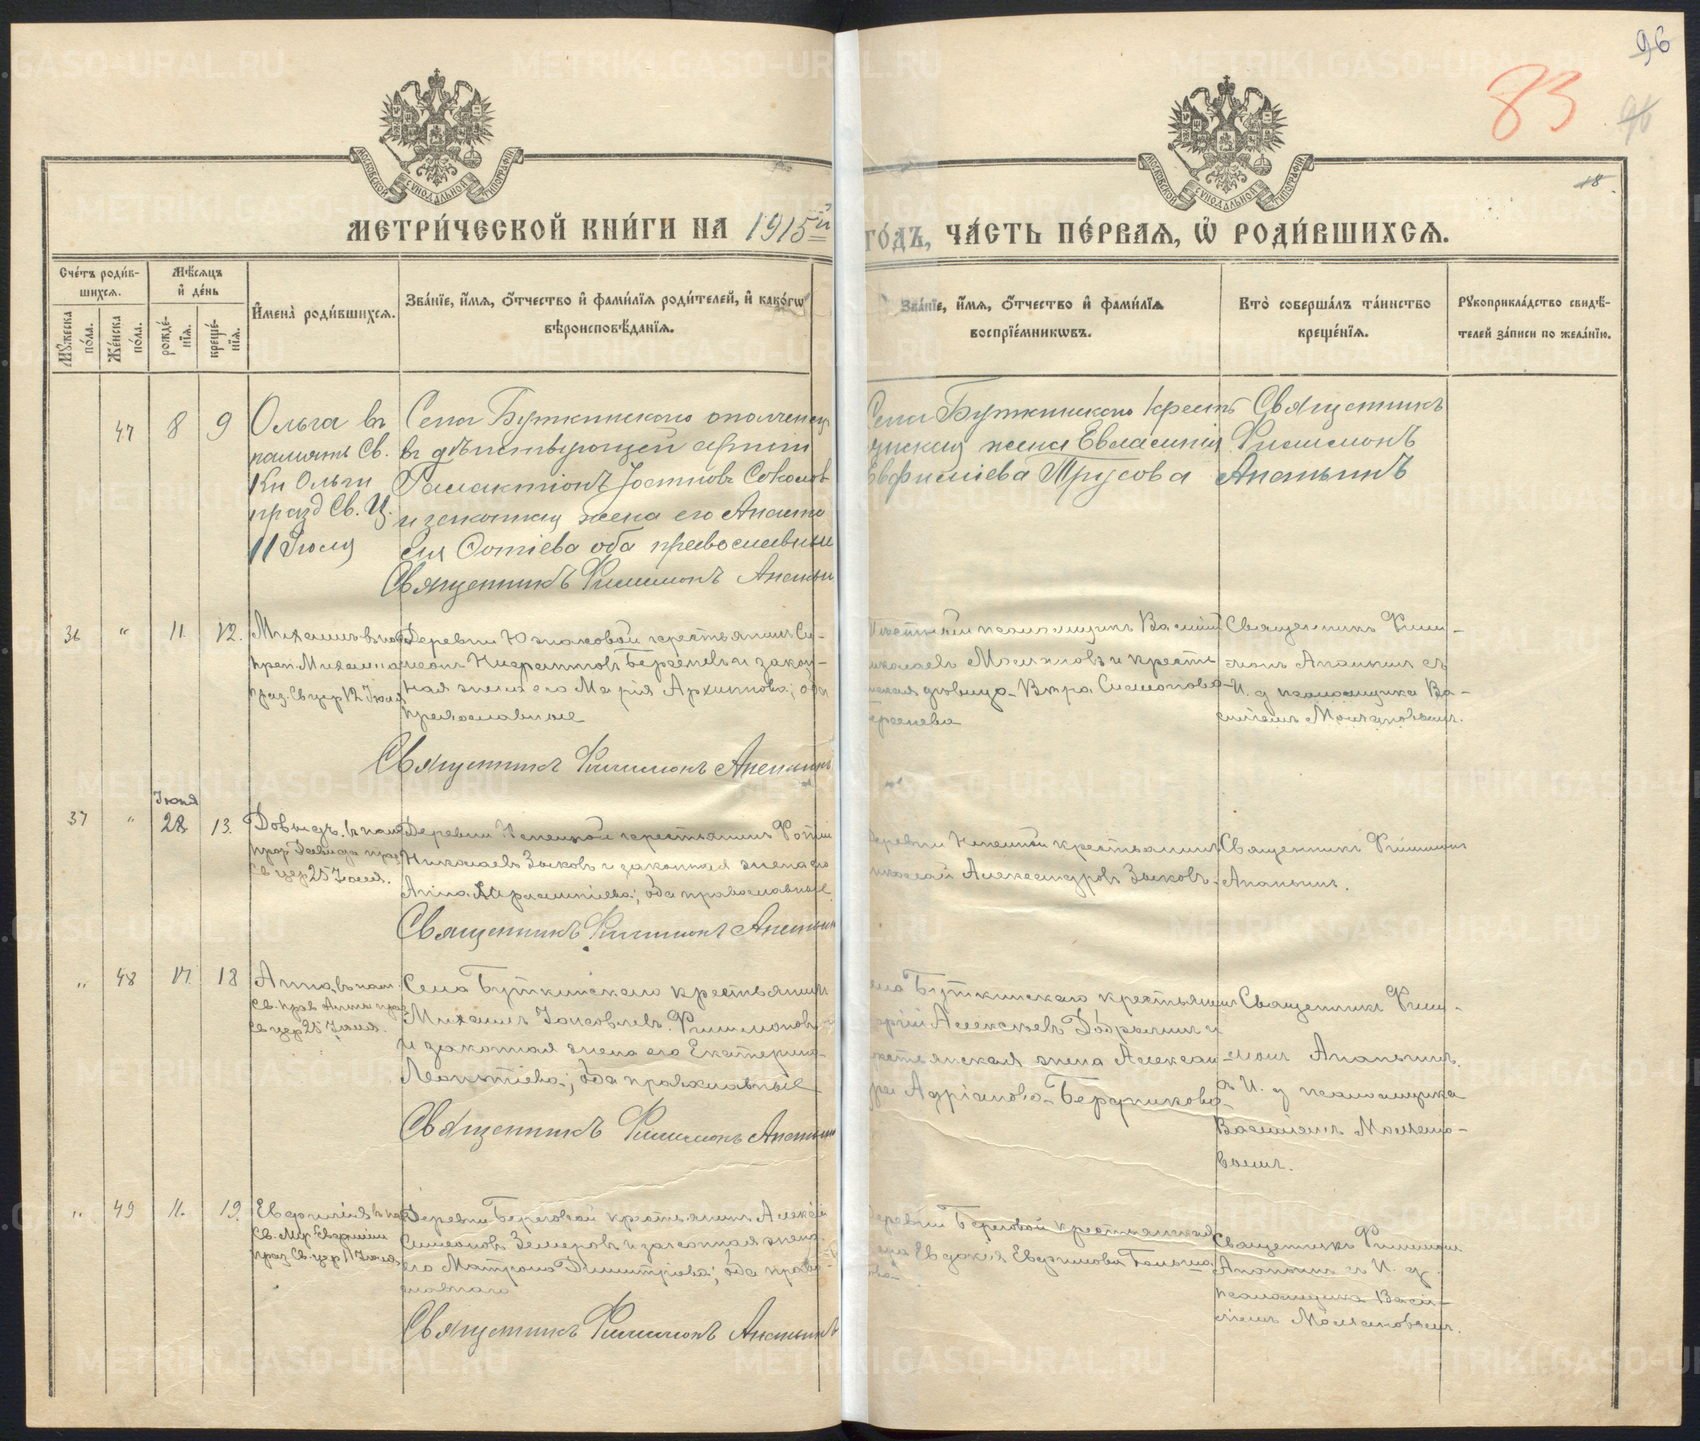 96
83
18.
МЕТРИ́ЧЕСКОЙ КНИ́ГИ НА 1915й
ГО́ДЪ, ЧА́СТЬ ПЕ́РВАЯ, Ѡ҆ РОДИ́ВШИХСЯ.
МОСКОВСКОЙ СѴНОДАЛЬНОЙ ТИПОГРАФІИ
МОСКОВСКОЙ СѴНОДАЛЬНОЙ ТИПОГРАФІИ
Сче́тъ роди́в-
шихся.
Мꙋ́жеска по́ла.
Же́нска по́ла.
Мѣ́сяцъ
и҆ де́нь
рожде́-
нїя.
креще́-
нїя.
И҆мена̀ роди́вшихся.
Зва́нїе, и҆́мя, ѻ҆́тчество и҆ фами́лїя роди́телей, и҆ како́гѡ
вѣроисповѣ́данїя.
Зва́нїе, и҆́мя, ѻ҆́тчество и҆ фами́лїя
воспрїе́мникѡвъ.
Кто̀ соверша́лъ та́инство
креще́нїя.
Рꙋкоприкла́дство свидѣ́-
телей за́писи по жела́нїю.
47 8 9
Ольга въ
память Св.
Кн Ольги
празд Св. Ц.
11 Іюля
Села Буткинскаго ополченец
въ дѣйствующей арміи
Галактіонъ Іоанновъ Соколовъ
и законная жена его Анаста
сія Фотіева оба православные
Священникъ Филимонъ Ананьин
Села Буткинскаго крестъ
янская жена Евлампія
Евфиміева Трусова
Священникъ
Филимонъ
Ананьинъ
36 " 11. 12.
Михаилъ въ пам
Преп. Михаила
праз. Св цер 12 Іюля
крестьянинъ Си-
меонъ Берсеневъ и закон-
ная жена его Марія Архипова; оба
православные
Священникъ Филимонъ Ананьинъ
псаломщикъ Василій
Николаевъ Молчановъ и кресть
янская дѣвица Вѣра Симеонова
Берсенева
Священникъ Фили-
монъ Ананьинъ съ
И. д псаломщика Ва-
силіемъ Молчановымъ.
37 " Іюня
28 13.
Давидъ въ пам
прор Давида праз
Св цер 25 Іюня.
крестьянинъ Фотій
Николаевъ Зыковъ и законная жена его
Анна; оба православные
Священникъ Филимонъ Ананьинъ
крестьянинъ
Николай Александровъ Зыковъ.
Священникъ Филимонъ
Ананьинъ.
" 48 17 18
Анна въ пам.
Св. прав Анны праз
Св цер 25 Іюля.
Села Буткинскаго крестьянинъ
Михаилъ Іаковлевъ Филимоновъ
и законная жена его Екатерина
Леонтіева; оба православные
Священникъ Филимонъ Ананьинъ
Села Буткинскаго крестьянинъ
Алексѣевъ Добрынинъ и
крестьянская жена Александ-
ра Адріанова Бердникова
Священникъ Фили-
монъ Ананьинъ
съ И. д псаломщика
Василіемъ Молчано-
вымъ.
" 49 11. 19.
Евфимія въ пам
Св. Мц Евфиміи
праз Св. цер 11 Іюля
Деревни Береговой крестьянинъ Алексѣй
Симеоновъ Земеровъ и законная жена
его Матрона Димитріева; оба право-
славнаго
Священникъ Филимонъ Ананьинъ
Деревни Береговой крестьянская
жена Евдокія Евфимова
Священникъ Филимонъ
Ананьинъ съ И. д.
псаломщика Васи-
ліемъ Молчановымъ.